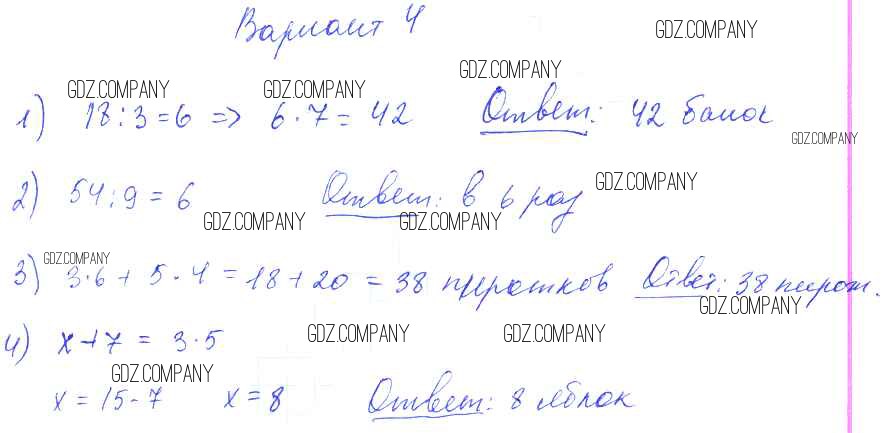 Вариант 4
GDZ.COMPANY
GDZ.COMPANY
GDZ.COMPANY GDZ.COMPANY
1) 18:3=6 => 6·7=42 Ответ: 42 банок
GDZ.COMPANY
2) 54:9=6 Ответ: в 6 раз GDZ.COMPANY
GDZ.COMPANY GDZ.COMPANY
GDZ.COMPANY
3) 3·6+5·4=18+20=38 пирожков Ответ: 38 пирож.
GDZ.COMPANY
4) x+7=3·5 GDZ.COMPANY GDZ.COMPANY
GDZ.COMPANY
x=15-7 x=8 Ответ: 8 яблок